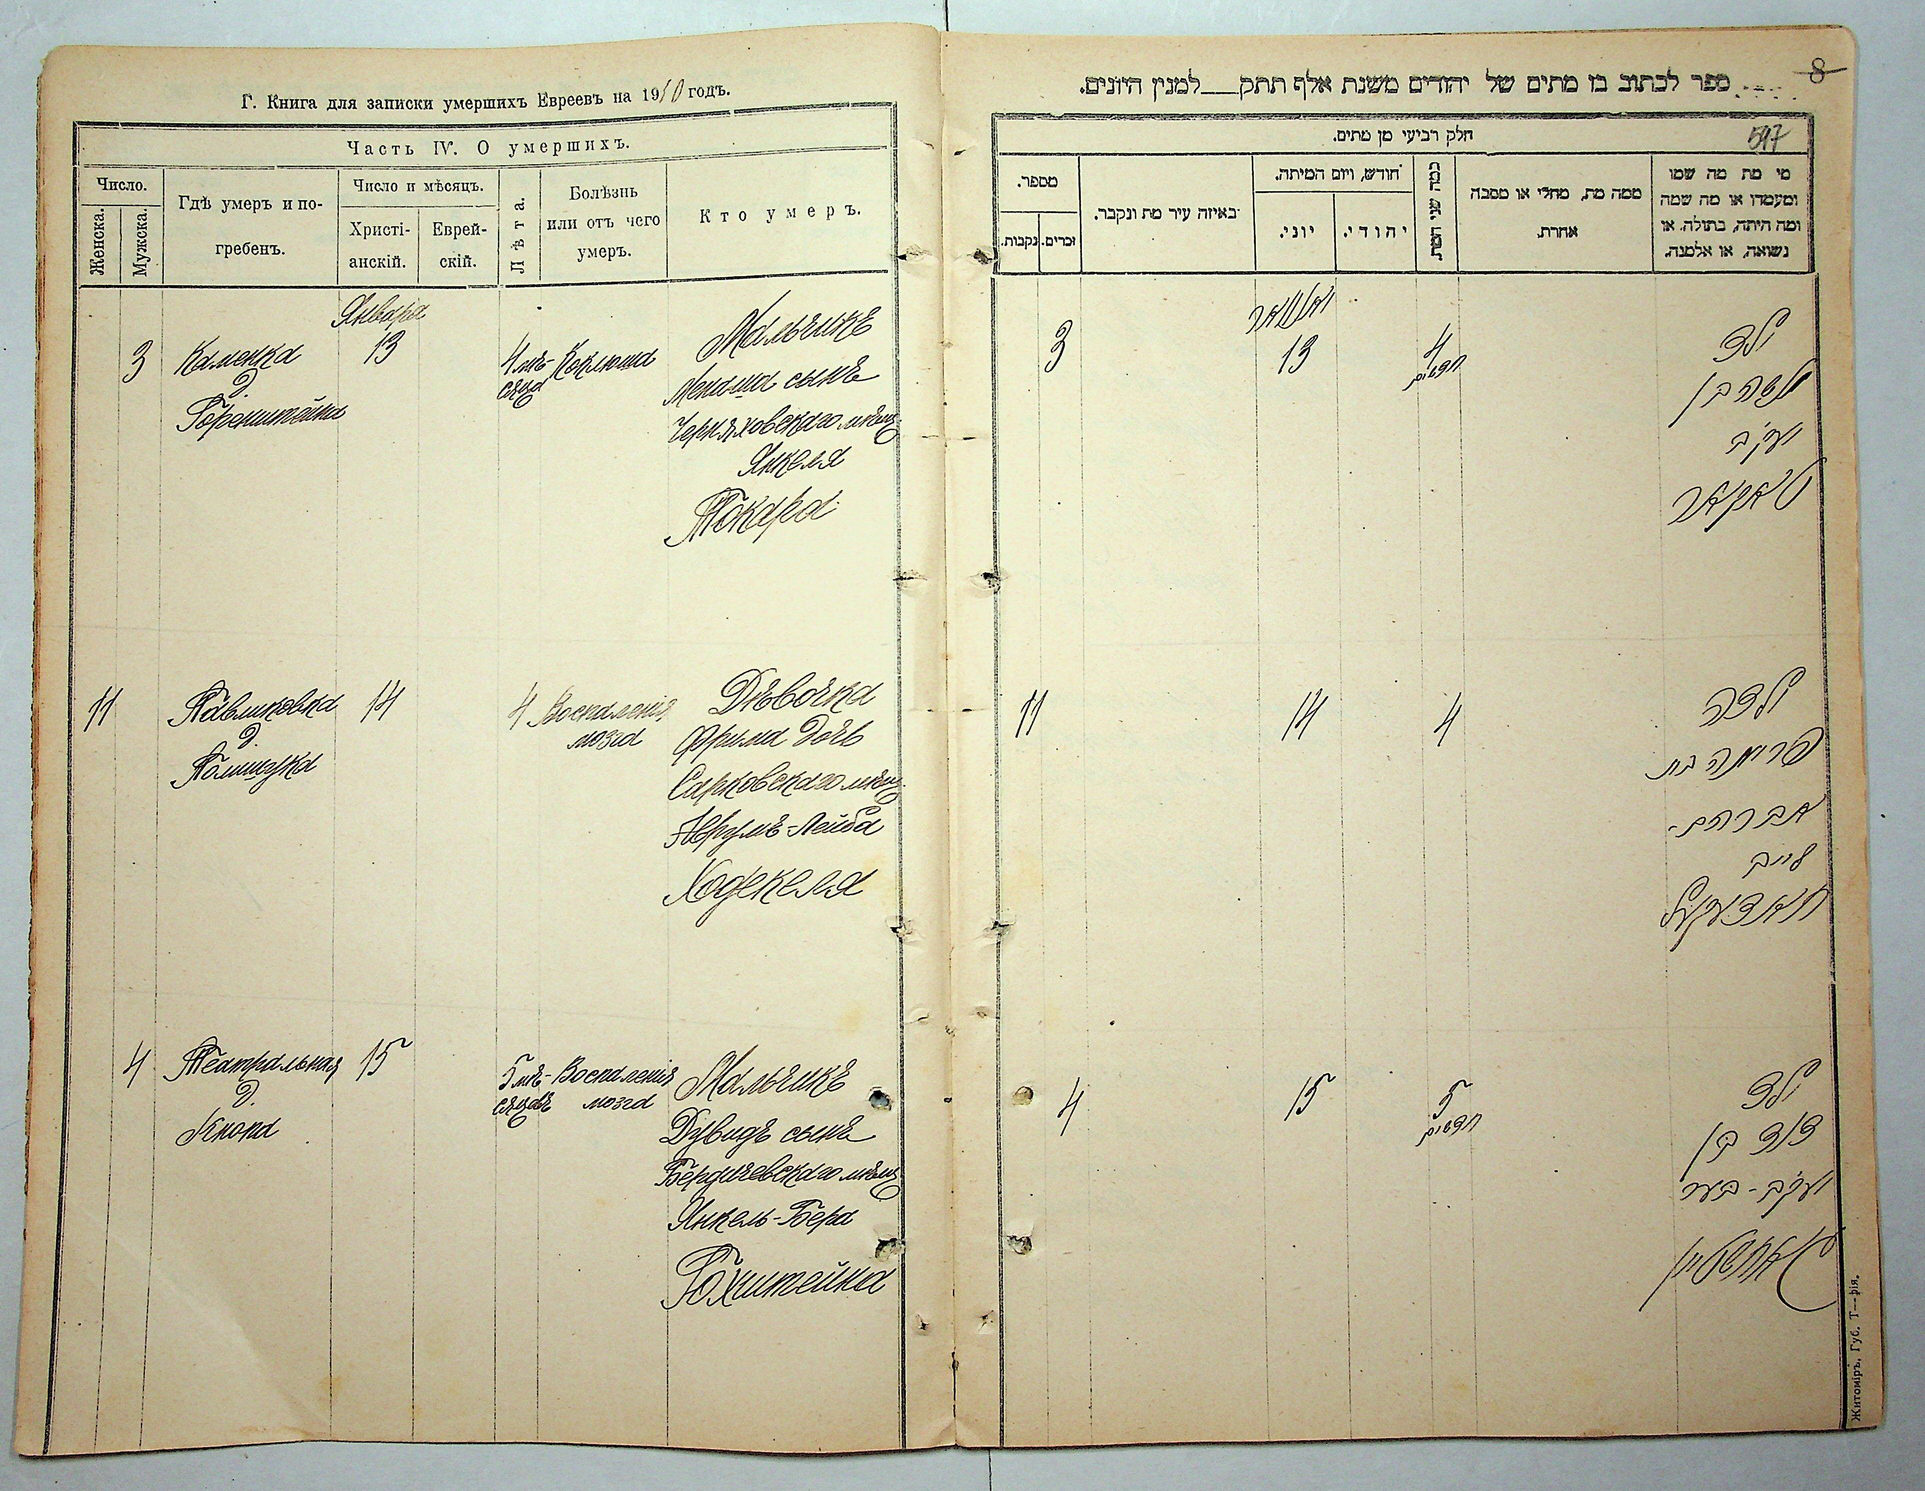 Г. Книга для записки умершихъ Евреевъ на 1910 годъ.
Часть IV. О умершихъ.
Число.
Женска.
Мужска.
Гдѣ умеръ и по-
гребенъ.
Число и мѣсяцъ.
Христі-
анскій.
Еврей-
скій.
Лѣта.
Болѣзнь
или отъ чего
умеръ.
Кто умеръ.
Января
3 Каменка 13 4 мѣ- Коклюша Мальчикъ
д. сяца Менаша сынъ
Горенштейна Черняховскаго мѣщ.
Янкеля
Токаря
11 Павликовка 14 4 Воспаленія Дѣвочка
д. мозга Фрима дочь
Полищука мѣщ.
Аврумъ-Лейба
Ходекеля
4 Театральная 15 5 мѣ- Воспаленія Мальчикъ
д. сяцевъ мозга Дувидъ сынъ
Бердичевскаго мѣщ.
Янкель-Бера
Гохштейна
8
ספר לכתוב בו מתים של יהודים משנת אלף תתק___למנין היונים.
597
חלק רביעי מן מתים.
מספר.
זכרים.
נקבות.
באיזה עיר מת ונקבר.
חודש, ויום המיתה.
יוני.
יהודי.
כמה שני המת.
ממה מת, מחלי או מסבה
אחרת.
מי מת מה שמו
ומעמדו או מה שמה
ומה היתה, בתולה. או
נשואה, או אלמנה.
יאנואר
3 13 4 ילד
חדשים
מנשה בן
יעקב
טאקאר
11 14 4 ילדה
פרימה בת
אברהם-
לייב
חאדעקעל
4 15 5 ילד
חדשים
דוד בן
יעקב-בער
גאחשטיין
Житоміръ. Губ. Т—фія.